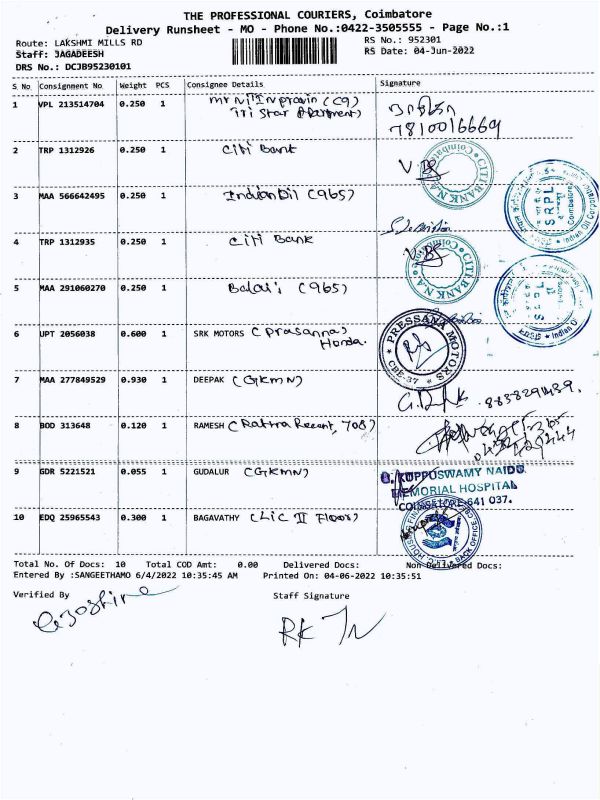 THE PROFESSIONAL COURIERS, Coimbatore
Delivery Runsheet - MO - Phone No.:0422-3505555 - Page No.:1
Route: LAKSHMI MILLS RD
RS No.: 952301
Staff: JAGADEESH
RS Date: 04-Jun-2022
DRS No.: DCJB95230101
S No Consignment No Weight PCS Consignee Details Signature
1 VPL 213514704 0.250 1 Mr Nitin pravin (C9)
Tri Star Apartment)
7810016669
2 TRP 1312926 0.250 1 Citi Bank
CITIBANK N.A. Coimbatore
3 MAA 566642495 0.250 1 IndianOil (965)
SRPL Coimbatore Indian Oil Corporation
4 TRP 1312935 0.250 1 Citi Bank
CITIBANK N.A. Coimbatore
5 MAA 291060270 0.250 1 Balaji (965)
SRPL Indian Oil
6 UPT 2056038 0.600 1 SRK MOTORS (Prasanna)
Honda.
PRESSANA MOTORS CBE-37
7 MAA 277849529 0.930 1 DEEPAK (GKMN)
8 BOD 313648 0.120 1 RAMESH (Rathna Regent, 708)
9 GDR 5221521 0.055 1 GUDALUR (GKMN)
G. KUPPUSWAMY NAIDU
MEMORIAL HOSPITAL
COIMBATORE-641 037.
10 EDQ 25965543 0.300 1 BAGAVATHY (LIC II Floor)
BACK OFFICE
Total No. Of Docs: 10 Total COD Amt: 0.00 Delivered Docs: Non Delivered Docs:
Entered By :SANGEETHAMO 6/4/2022 10:35:45 AM Printed On: 04-06-2022 10:35:51
Verified By Staff Signature